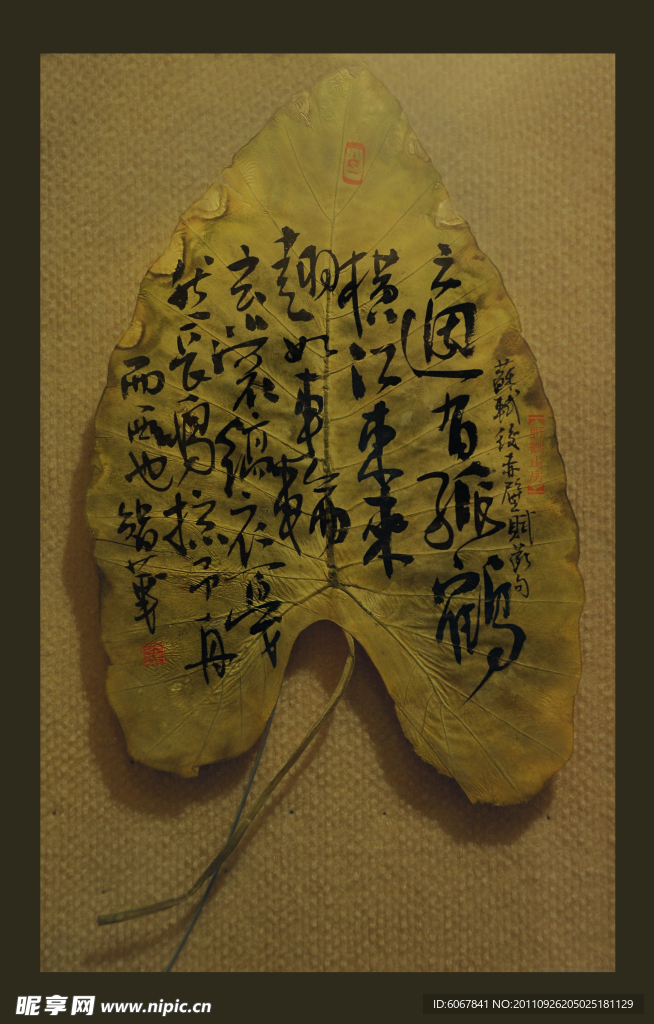 蘇軾後赤壁賦
適有孤鶴
橫江東來
翅如車輪
玄裳縞衣戛
然長鳴掠予舟
而西也
昵享网 www.nipic.cn
ID:6067841 NO:20110926205025181129